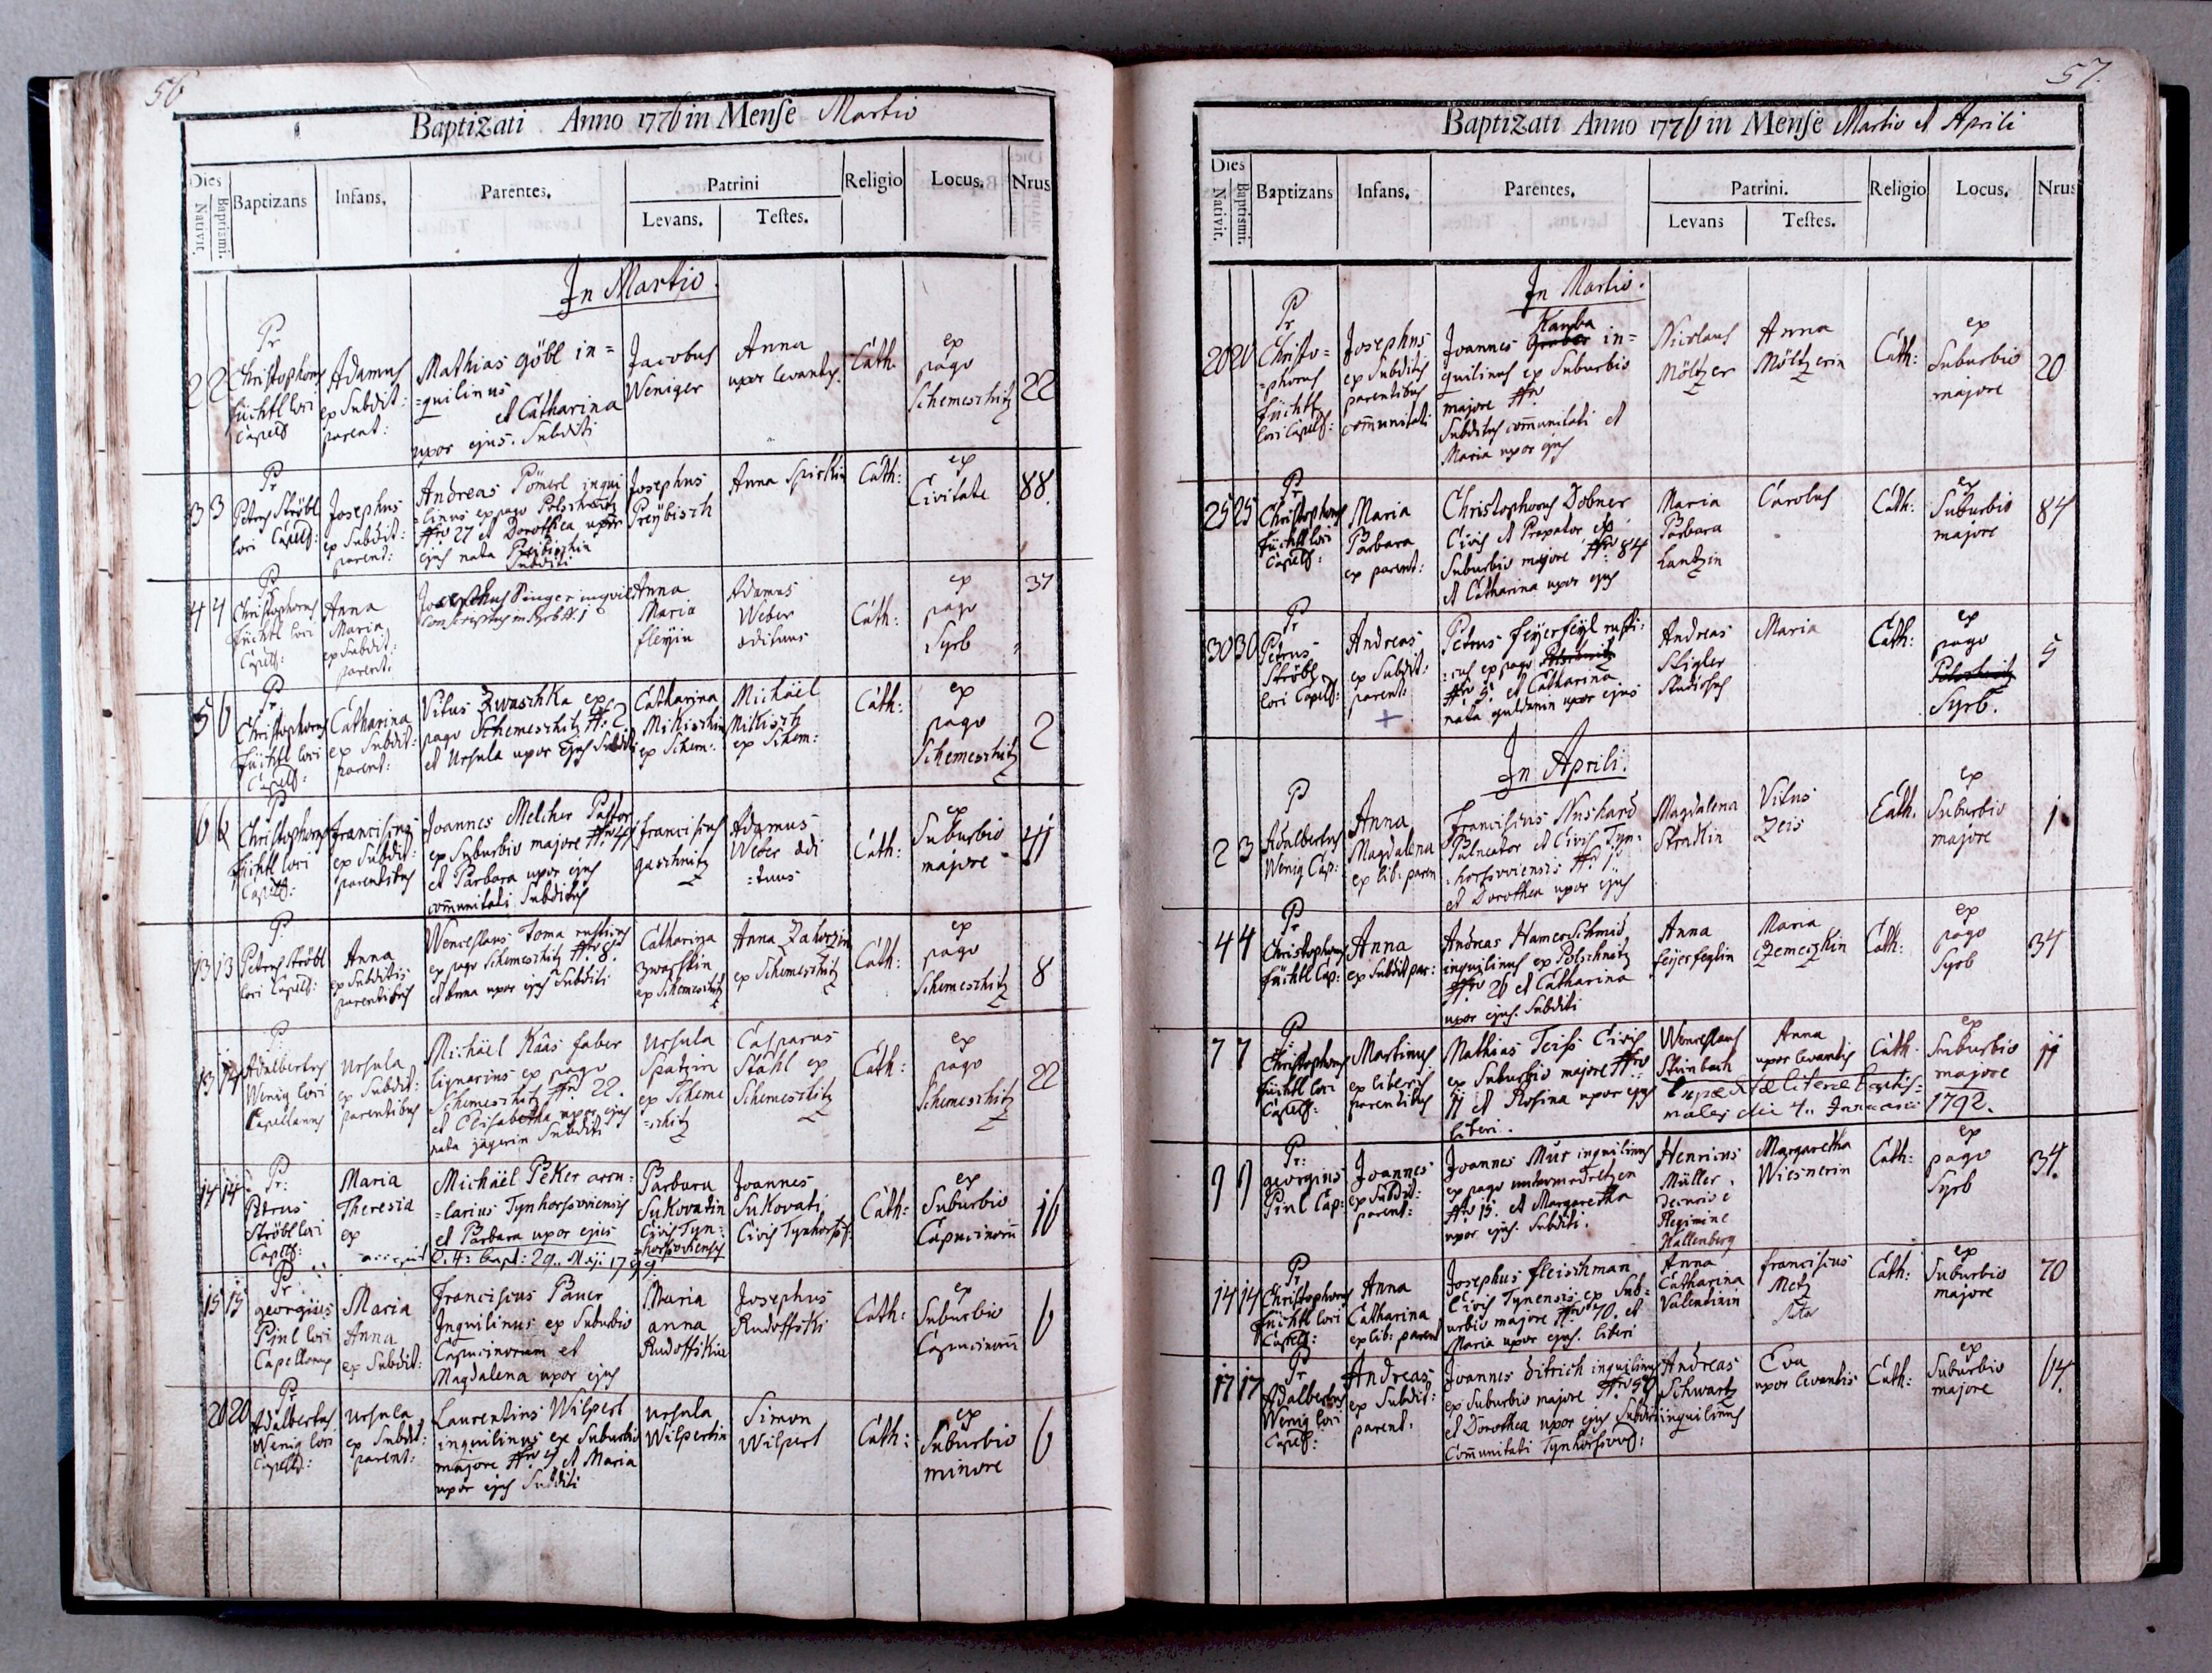 56
Baptizati Anno 1776 in Mense Martio
Dies
Nativit.
Baptismi.
Baptizans
Infans.
Parentes.
Patrini
Levans.
Testes.
Religio
Locus.
Nrus
In Martio.
2 2
Pr
Christophorus
füchtl loci
Capell:
Adamus
ex Subdit:
parent:
Mathias göbl in=
=quilinus
et Catharina
uxor ejus. Subditi
Jacobus
Weniger
Anna
uxor levantis.
Cath:
ex
pago
Schemeschitz
22
3 3
Pr
Petrus Ströbl
loci Capell:
Josephus
ex Subdit:
parent:
Andreas Pömerl inqui
=linus ex pago Polschnitz
Nro 27 et Dorothea uxor
ejus nata Preibischin
Subditi
Josephus
Preÿbisch
Anna Spirkin
Cath:
ex
Civitate
88.
4 4
P
Christophorus
füchtl loci
Capell:
Anna
Maria
ex Subdit:
parent:
Josephus Singer inquil
conscriptus in Syrb N. 1
Anna
Maria
fleÿin
Adamus
Weber
ædituus
Cath:
ex
pago
Syrb
37
5 6
Pr
Christophorus
füchtl loci
Capell:
Catharina
ex Subdit:
parent:
Vitus Zwaschka ex
pago Schemeschitz N: 2
et Ursula uxor Ejus Subditi
Catharina
Mikischin
ex Schem:
Michäel
Mikisch
ex Schem:
Cath:
ex
pago
Schemeschitz
2
6 6
P
Christophorus
füchtl loci
Capell:
franciscus
ex Subdit:
parentibus
Joannes Melcher Pastor
ex Suburbio majore Nro 41
et Barbara uxor ejus
communitati Subditus
franciscus
gaschnitz
Adamus
Weber ædi
=tuus
Cath:
ex
Suburbio
majore
41
13 13
P.
Petrus Ströbl
loci Capell:
Anna
ex Subditis
parentibus
Wenceslaus Toma rusticus
ex pago Schemeschitz Nro 8.
et Anna uxor ejus Subditi
Catharina
Zwaschkin
ex Schemeschitz
Anna Zahorzin
ex Schemeschitz
Cath:
ex
pago
Schemeschitz
8
13 14
P.
Adalbertus
Wenig loci
Capellanus
Ursula
ex Subdit:
parentibus
Michäel Kâas faber
lignarius ex pago
Schemeschitz Nr. 22.
et Elisabetha uxor ejus
nata jägerin Subditi
Ursula
Spatzin
ex Scheme
=schitz
Casparus
Stahl ex
Schemeschitz
Cath:
ex
pago
Schemeschitz
22
14 14
Pr:
Petrus
Ströbl loci
Capell:
Maria
Theresia
ex
Michäel Peker acu=
=larius Tynhorsoviensis
et Barbara uxor ejus
L. 4: bapt: 29. Maji 1799
Barbara
Sukovatin
Civis Tyn=
=horsoviensis
Joannes
Sukovati
Civis Tynhorsov:
Cath:
ex
Suburbio
Capucinorū
16
15 15
Pr
georgius
Pinl loci
Capellanus
Maria
Anna
ex Subdit:
Franciscus Pauer
Inquilinus ex Suburbio
Capucinorum et
Magdalena uxor ejus
Maria
anna
Rudoffskin
Josephus
Rudoffski
Cath:
ex
Suburbio
Capucinorū
6
20 20
Pr
Adalbertus
Wenig loci
Capell:
Ursula
ex Subdit:
parent:
Laurentius Wilpert
inquilinus ex Suburbio
majore Nro 9 et Maria
uxor ejus Subditi
Ursula
Wilpertin
Simon
Wilpert
Cath:
ex
Suburbio
minore
6
57.
Baptizati Anno 1776 in Mense Martio et Aprili
Dies
Nativit.
Baptismi.
Baptizans
Infans.
Parentes.
Patrini.
Levans
Testes.
Religio
Locus.
Nrus
In Martio.
20 20
Pr
Christo=
=phorus
füchtl
loci Capell:
Josephus
ex Subditis
parentibus
communitati
Kamba
Joannes Gruber in=
quilinus ex Suburbio
majore Nro
Subditus communitati et
Maria uxor ejus
Nicolaus
Möltzer
Anna
Möltzerin
Cath:
ex
Suburbio
majore
20
25 25
Pr
Christophorus
füchtl loci
Capell:
Maria
Barbara
ex parent:
Christophorus Dobner
Civis et Propator ex
Suburbio majore Nro 84
et Catharina uxor ejus
Maria
Barbara
Lantzin
Carolus
Cath:
ex
Suburbio
majore
84
30 30
Pr
Petrus
Ströbl
loci Capell:
Andreas
ex Subdit:
parent:
+
Petrus feÿerfeÿl rusti:
=cus ex pago Polschnitz
Nro 5. et Catharina
nata guldanin uxor ejus
Andreas
Stigler
Studiosus
Maria
Cath:
ex
pago
Polschnitz
Syrb.
5
In Aprili.
2 3
P
Adalbertus
Wenig Cap:
Anna
Magdalena
ex lib: paren
Franciscus Nushard
Balneator et Civis Tyn:
=horsoviensis Nr. 1
et Dorothea uxor ejus
Magdalena
Stradlin
Vitus
Zeis
Cath.
ex
Suburbio
majore
1
4 4
Pr
Christophorus
füchtl Cap:
Anna
ex Subdit par:
Andreas Hamerschmid
inquilinus ex Polschnitz
Nro 26 et Catharina
uxor ejus. Subditi
Anna
feÿerfeylin
Maria
Czemerzkin
Cath:
ex
pago
Syrb
34
7 7
P.
Christophorus
füchtl loci
Capell:
Martinus
ex liberis
parentibus
Mathias Teiss Civis
ex Suburbio majore Nro
11 et Rosina uxor ejus
liberi.
Wenceslaus
Steinbach
Anna
uxor levantis
Cath.
ex
Suburbio
majore
11
litteræ baptis=
males die 4. Januarii 1792.
9 9
Pr:
georgius
Pinl Cap:
Joannes
ex Subdit:
parent:
Joannes Mur inquilinus
ex pago untermedretzen
Nro 15. et Margaretha
uxor ejus. Subditi.
Henricus
Müller
Regimine
Kallenberg
Margaretha
Wiesnerin
Cath:
ex
pago
Syrb
34.
14 14
Pr
Christophorus
füchtl loci
Capell:
Anna
Catharina
ex lib: parent
Josephus fleischman
Civis Tynensis ex Sub=
urbio majore Nro 70. et
Maria uxor ejus. liberi
Anna
Catharina
Valentinin
franciscus
Metz
Cath:
ex
Suburbio
majore
70
17 17
Pr
Adalbertus
Wenig loci
Capell:
Andreas
ex Subdit:
parent:
Joannes ditrich inquilinus
ex Suburbio majore Nro
et Dorothea uxor ejus Subditi
Communitati Tynhorsoviens:
Andreas
Schwartz
inquilinus
Eva
uxor levantis
Cath:
ex
Suburbio
majore
64.